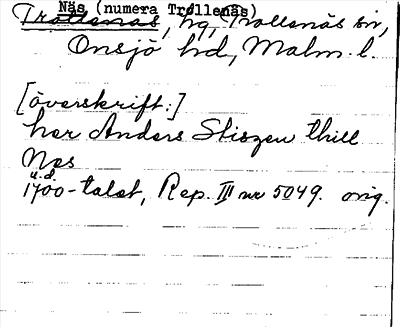 Näs (numera Trollenäs)
Trollenäs, hg, Trollenäs sn,
Onsjö hd, Malm. l.
[överskrift:]
her Anders Stiszen thill
Nes
u.d.
1700-talet, Rep. III nr 5049. orig.